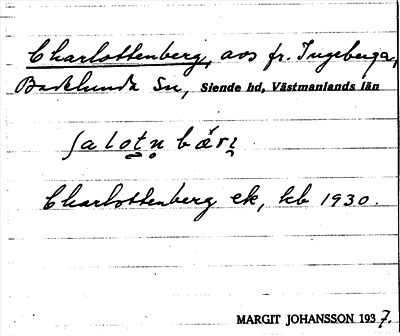 Charlottenberg, avs fr. Ingeberga,
Badelunda Sn, Siende hd, Västmanlands län
ʃalotn bærɩ
Charlottenberg ek, kb 1930.
MARGIT JOHANSSON 1937.